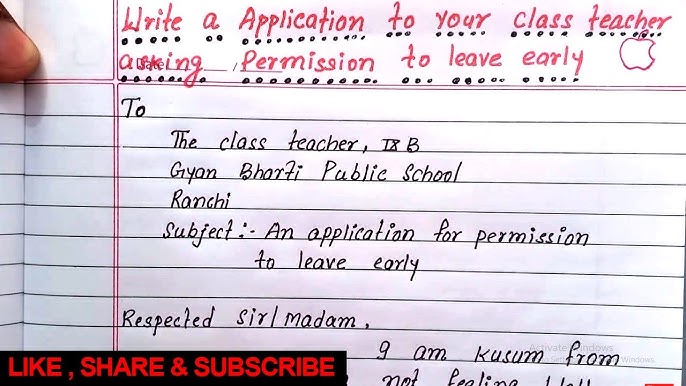 Write a Application to your class teacher
asking Permission to leave early
To
The class teacher, IX B
Gyan Bharti Public School
Ranchi
Subject:- An application for permission
to leave early
Respected Sir/Madam,
I am Kusum from
not feeling well
Activate Windows
LIKE , SHARE & SUBSCRIBE